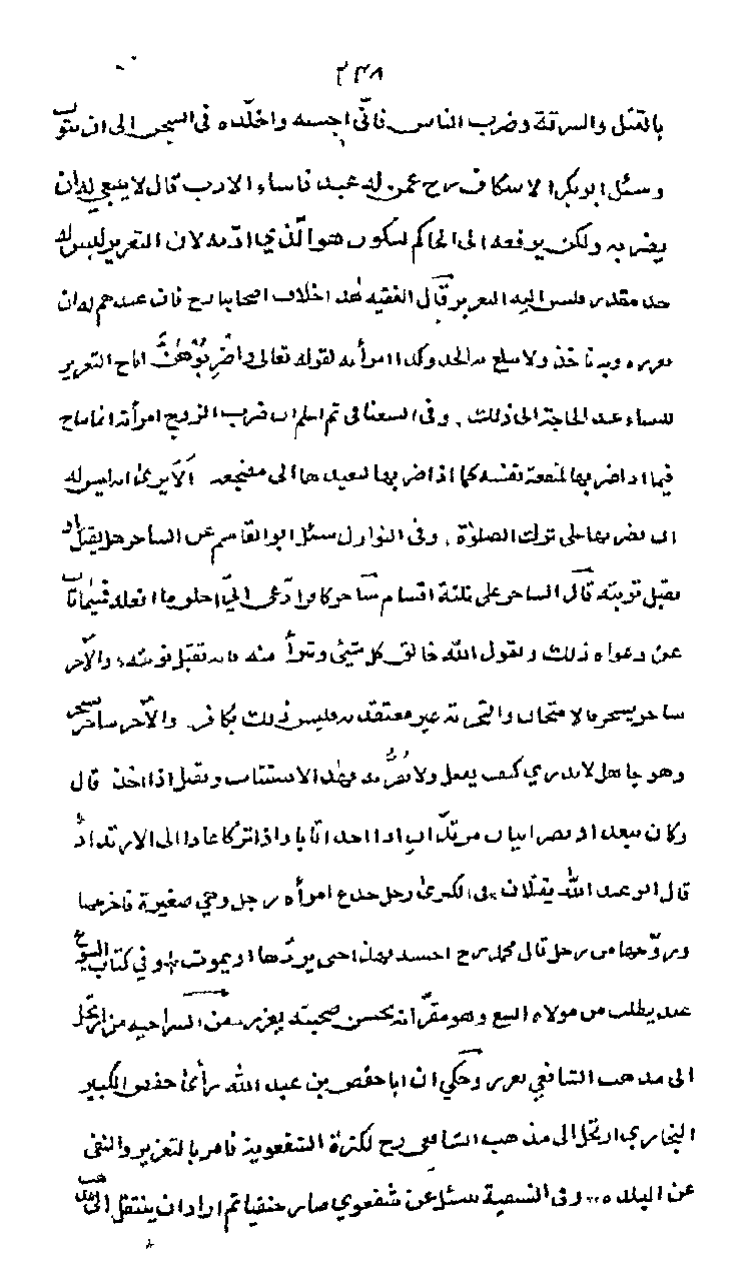 ٣٤٨
بالقتل والسرقة وضرب الناس فانّى احبسه واخلّده فى السجن الى ان يتوب
وسئل ابوبكر الاسكاف رح عمن له عبد فاساء الادب قال لا ينبغي له ان
يضربه ولكن يرفعه الى الحاكم ليكون هو الّذي ادّبه لان التعزير ليس له
حد مقدر فليس اليه التعزير قال الفقيه هذا خلاف اصحابنا رح فان عندهم له ان
يعزره وبه ناخذ ولا يبلغ به الحد وكذا امرأته لقوله تعالى واضْرِبُوْهُنَّ اباح التعزير
للنساء عند الحاجة الى ذلك . وفى السغناقى ثم اعلم ان ضرب الزوج امرأته انما يباح
فيما اذا ضربها لمنفعة نفسه كما اذا ضربها لتعيدها الى مضجعه الا يرى انه ليس له
ان يضربها على ترك الصلوة . وفى النوازل سئل ابو القاسم عن الساحر هل يقتل او
يقبل توبته قال الساحر على ثلثة اقسام ساحر كافر ادّعى انّي اخلق ما افعله فيما تاب
عن دعواه ذلك ويقول الله خالق كل شيئ وتبرأ منه فانه تقبل توبته والآخر
ساحر يسحر بالامتحان والتجربة غير معتقد به فليس ذلك بكافر والآخر ساحر يسحر
وهو جاهل لا يدري كيف يفعل ولا يقرّ به فهذا الاستتاب ويقتل اذا اخذ قال
وكان بعد اذ نصرانيان مرتدّان اذا اخذا تابا واذا تركا عادا الى الارتداد
قال ابو عبد الله يقتلان فى الكبرى رجل خدع امرأة رجل وهي صغيرة فاخرجها
وزوّجها من رجل قال محمد رح احبسه بهذا حتى يردّها او يموت وفى كتاب البيوع
عبد يطلب من مولاه البيع وهو مقرّ انه يحسن صحبته يعزر من السراجيه من ارتحل
الى مذهب الشافعي يعزر وحكي ان ابا حفص بن عبد الله رأى حفص الكبير
البخاري ارتحل الى مذهب الشافعى رح لكثرة الشفعوية فامر بالتعزير والنفى
عن البلدة وفى النسفية سئل عن شفعوي صار حنفيا ثم اراد ان ينتقل الى